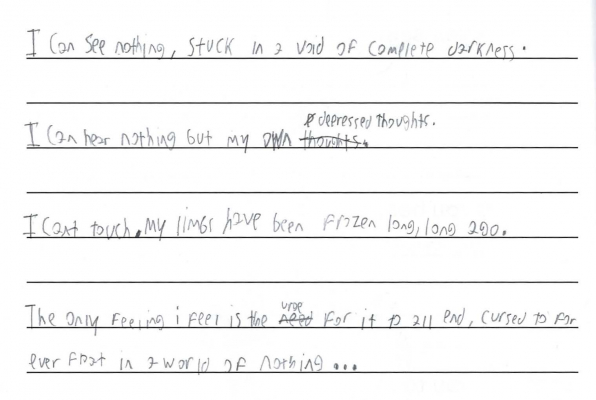 I can see nothing, stuck in a void of complete darkness.
depressed thoughts.
I can hear nothing but my own thoughts.
I cant touch. My limbs have been frozen long, long ago.
urge
The only feeling i feel is the need for it to all end, cursed to for
ever float in a world of nothing...